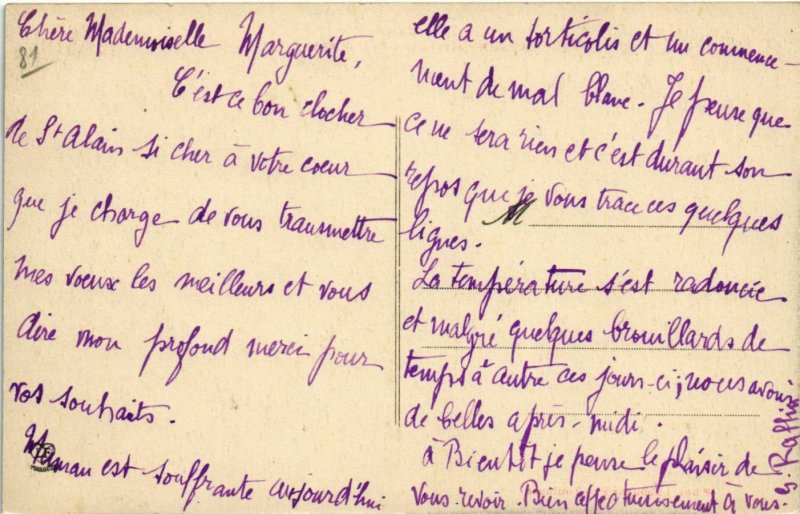 Chère Mademoiselle Marguerite,
81
C'est ce bon clocher
de St Alain si cher à votre coeur
que je charge de vous transmettre
mes voeux les meilleurs et vous
dire mon profond merci pour
vos souhaits.
Maman est souffrante aujourd'hui
elle a un torticolis et un commence-
ment de mal blanc. Je pense que
ce ne sera rien et c'est durant son
repos que je vous trace ces quelques
lignes.
La température s'est radoucie
et malgré quelques brouillards de
temps à autre ces jours-ci, nous avons
de belles après-midi.
à Bientôt je pense le plaisir de
vous revoir. Bien affectueusement à vous.